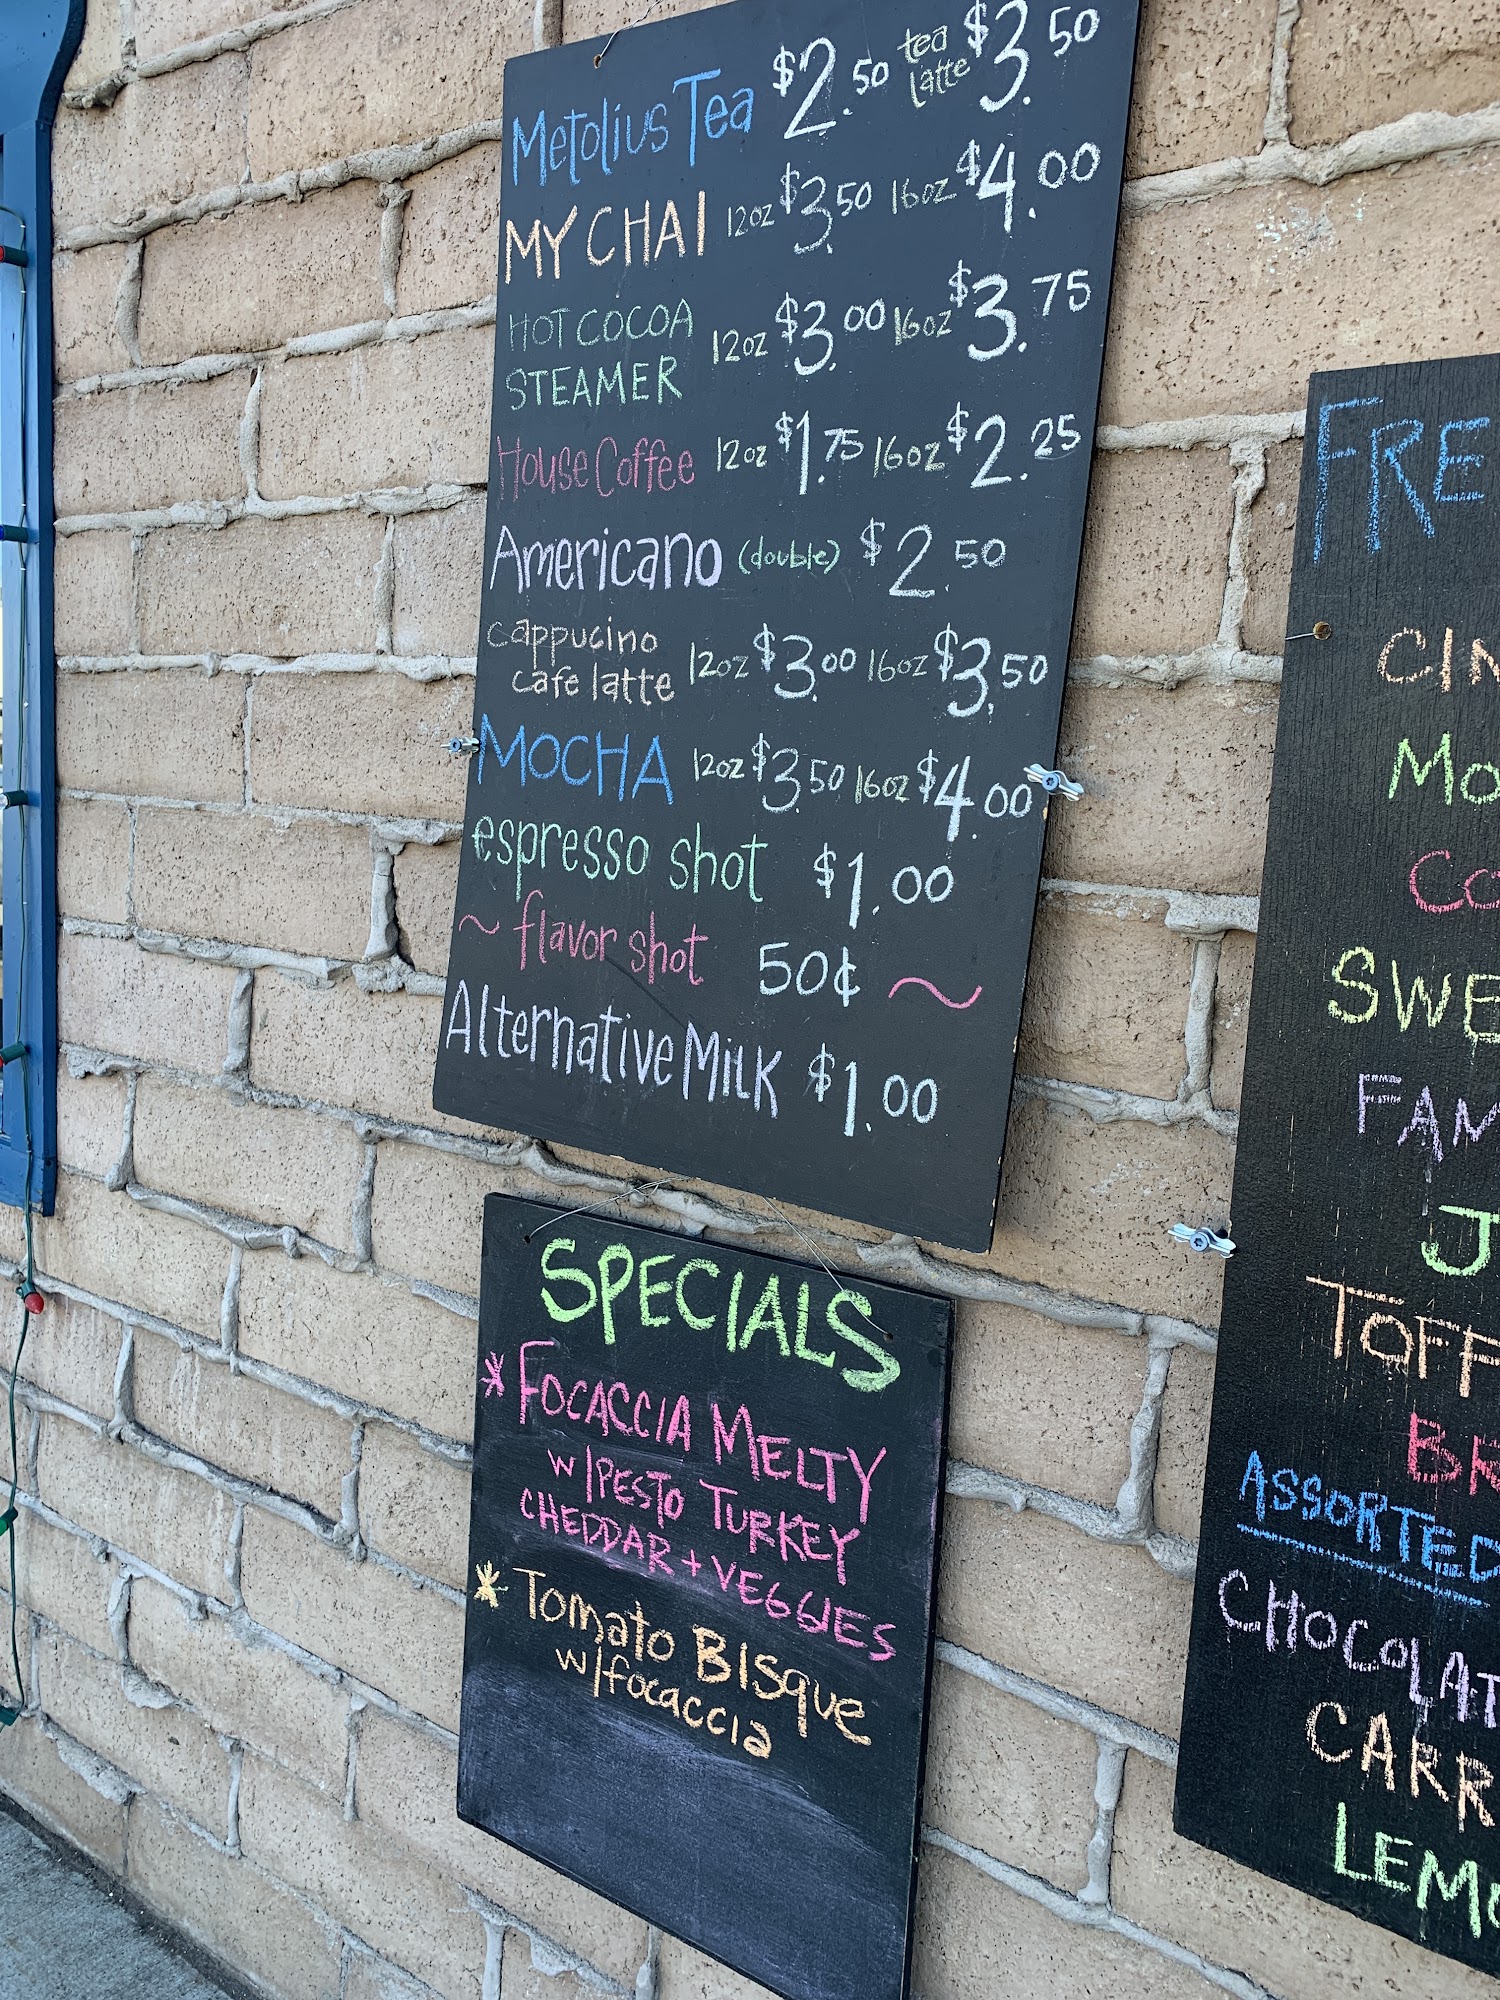 Metolius Tea $2.50 tea latte $3.50
MY CHAI 12oz $3.50 16oz $4.00
HOT COCOA
STEAMER 12oz $3.00 16oz $3.75
House Coffee 12oz $1.75 16oz $2.25
Americano (double) $2.50
cappucino
cafe latte 12oz $3.00 16oz $3.50
MOCHA 12oz $3.50 16oz $4.00
espresso shot $1.00
~ flavor shot 50¢ ~
Alternative MiLK $1.00
SPECIALS
* FOCACCIA MELTY
w/PESTO TURKEY
CHEDDAR + VEGGIES
* Tomato Bisque
w/focaccia
FRE
CIN
MO
CO
SWE
FAM
J
TOFF
BR
ASSORTED
CHOCOLAT
CARR
LEMO